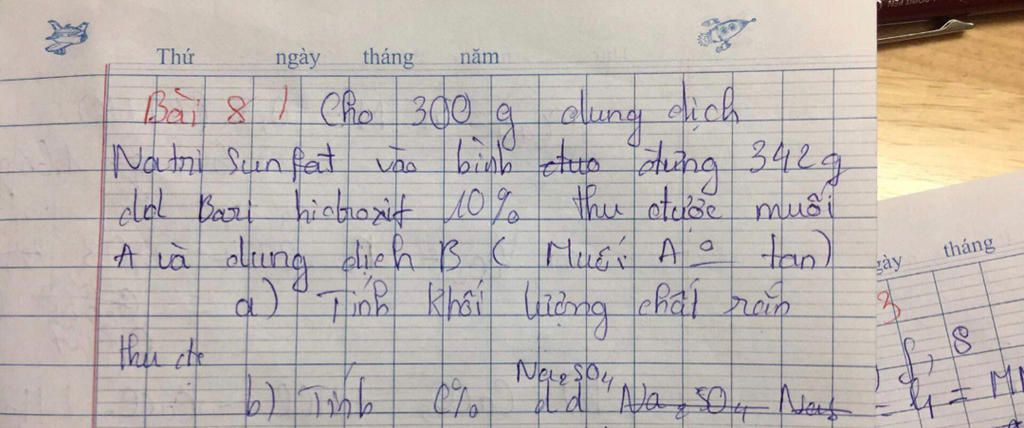 Thứ ngày tháng năm
Bài 8 / Cho 300 g dung dịch
Natri Sunfat vào bình đựng 342g
dd Bari hidroxit 10% thu được muối
A và dung dịch B ( Muối A o tan)
a) Tính khối lượng chất rắn
thu đc
Na2SO4
b) Tính C% dd Na2SO4 Na2
gày tháng
8